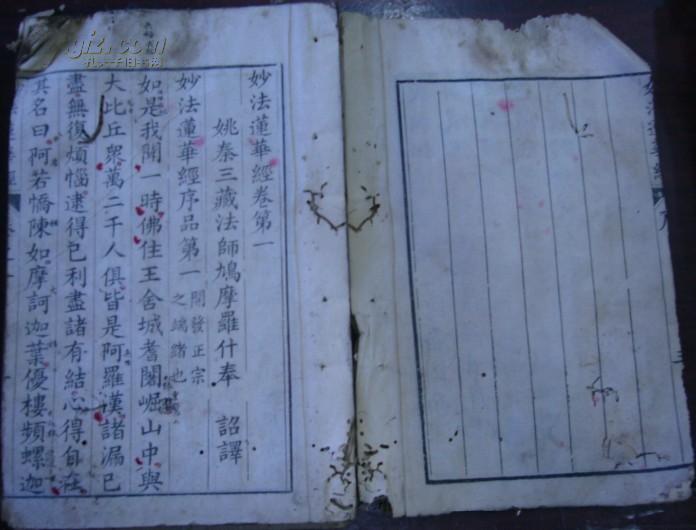 妙法蓮華經卷第一
姚秦三藏法師鳩摩羅什奉 詔譯
妙法蓮華經序品第一 開發正宗之端緒也
如是我聞一時佛住王舍城耆闍崛山中與
大比丘眾萬二千人俱皆是阿羅漢諸漏已
盡無復煩惱逮得己利盡諸有結心得自在
其名曰阿若憍陳如摩訶迦葉優樓頻螺迦
妙法蓮華經
序
孔夫子旧书网